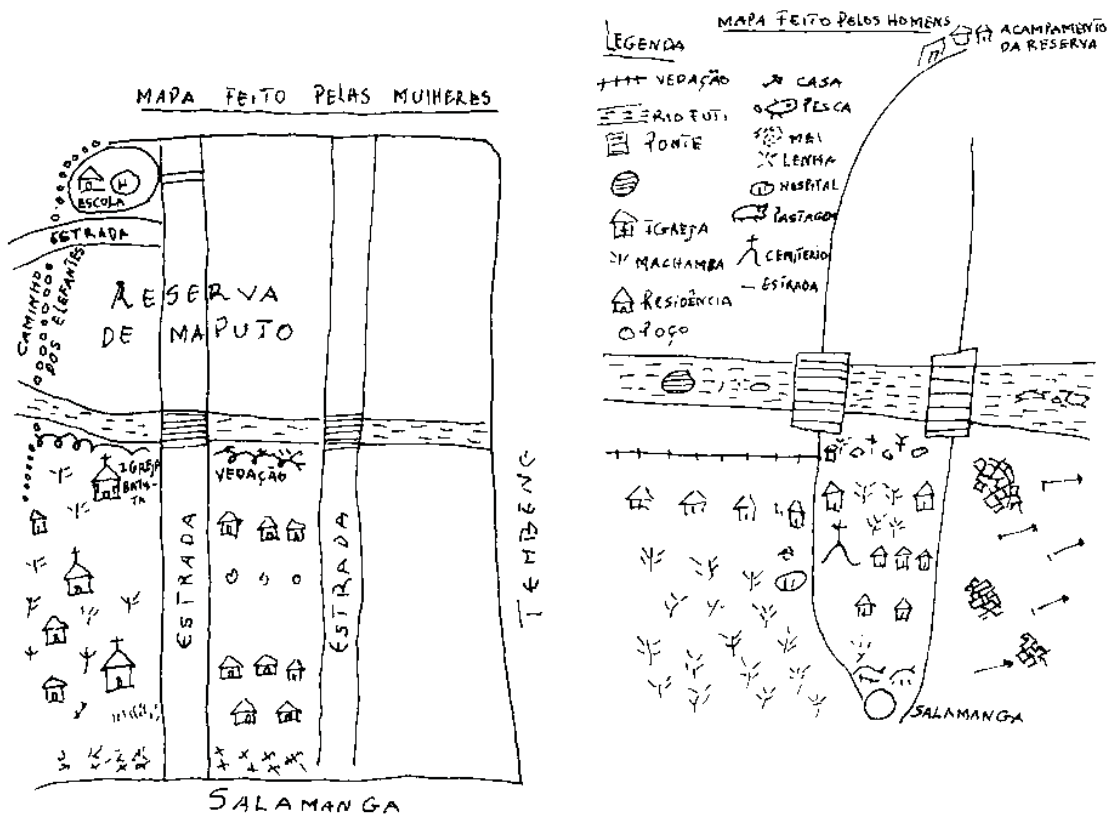 MAPA FEITO PELAS MULHERES
ESCOLA
H
ESTRADA
CAMINHO
DOS ELEFANTES
RESERVA
DE MAPUTO
IGREJA
BATIS-
TA
VEDAÇÃO
ESTRADA
ESTRADA
TEMBENE
SALAMANGA
MAPA FEITO PELOS HOMENS
ACAMPAMENTO
DA RESERVA
LEGENDA
VEDAÇÃO
RIO FUTI
PONTE
IGREJA
MACHAMBA
RESIDÊNCIA
POÇO
CASA
PESCA
MEL
LENHA
HOSPITAL
PASTAGEM
CEMITERIO
ESTRADA
SALAMANGA